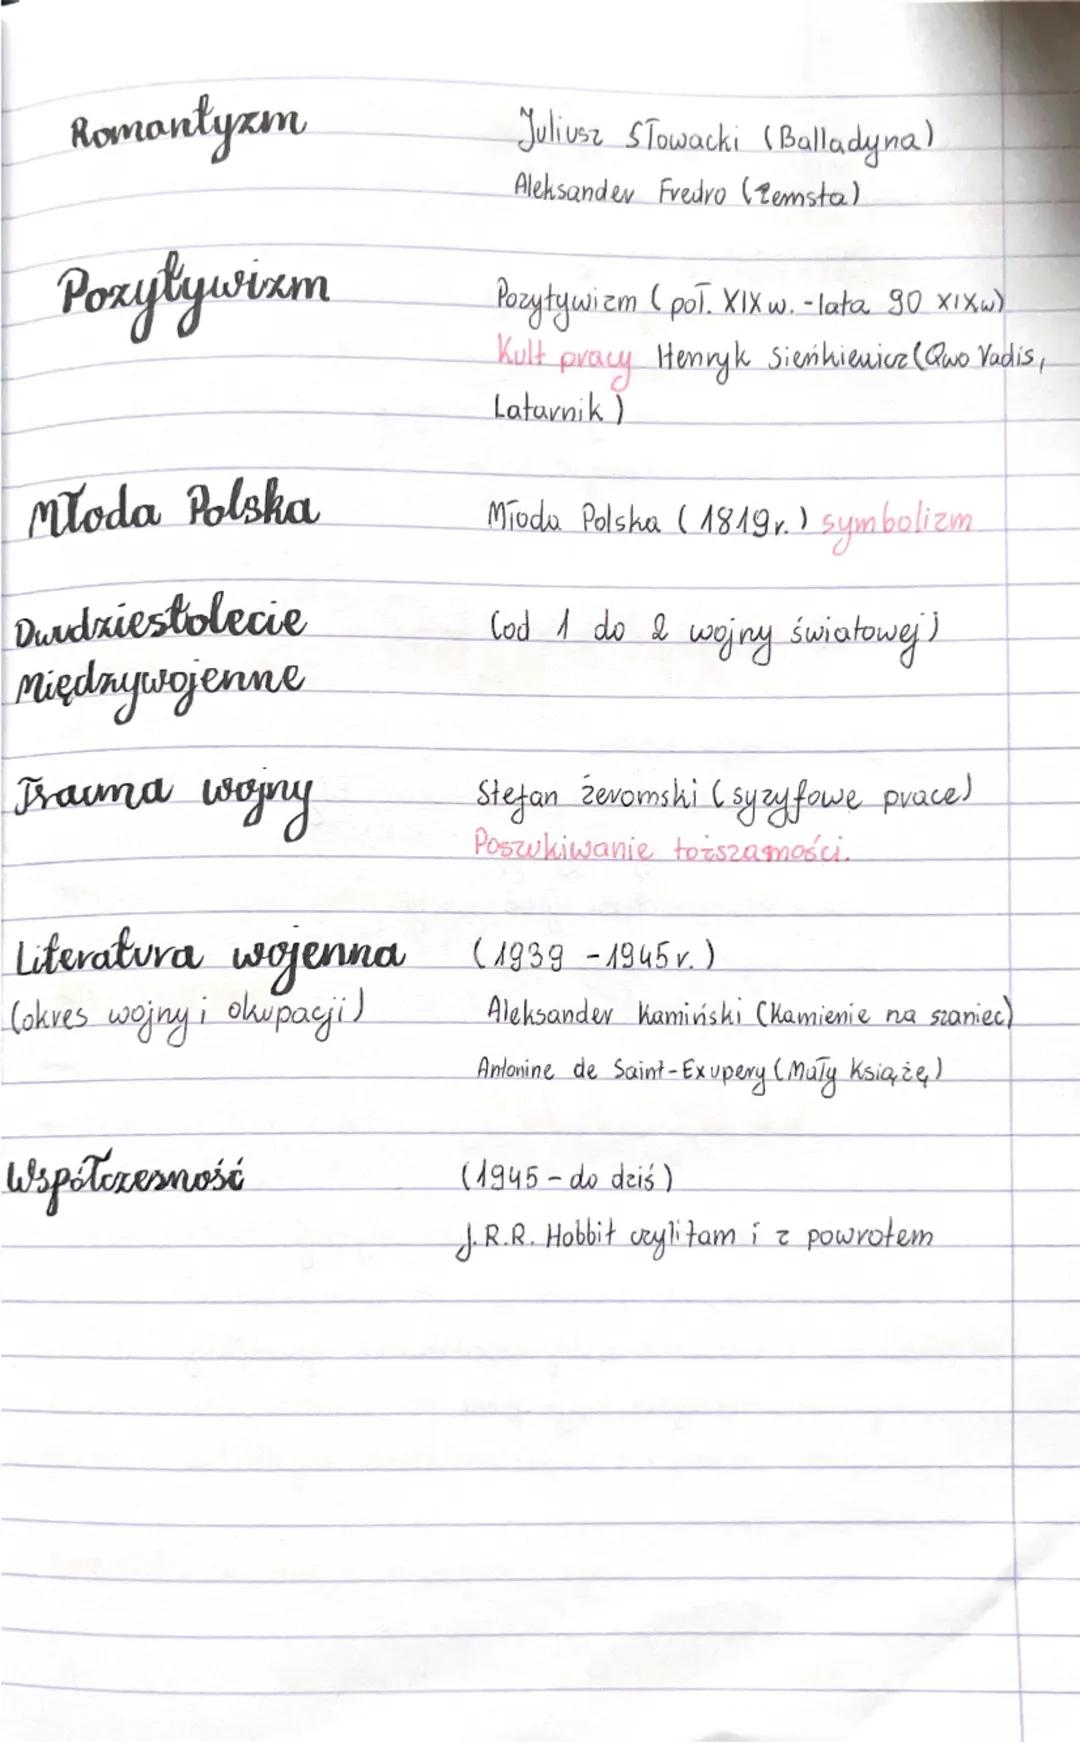 Romantyzm
Juliusz Słowacki (Balladyna)
Aleksander Fredro (Zemsta)
Pozytywizm
Pozytywizm (poł. XIX w. - lata 90 XIXw)
Kult pracy Henryk Sieńkiewicz (Qwo Vadis,
Latarnik)
Młoda Polska
Młoda Polska (1819r.) symbolizm
Dwudziestolecie
(od 1 do 2 wojny światowej)
Międzywojenne
Trauma wojny
Stefan żeromski (syzyfowe prace)
Poszukiwanie toższamości.
Literatura wojenna
(1939 - 1945 r.)
(okres wojny i okupacji)
Aleksander Kamiński (Kamienie na szaniec)
Antonine de Saint-Exupery (Mały Książę)
Współczesność
(1945 - do dziś)
J.R.R. Hobbit czyli tam i z powrotem